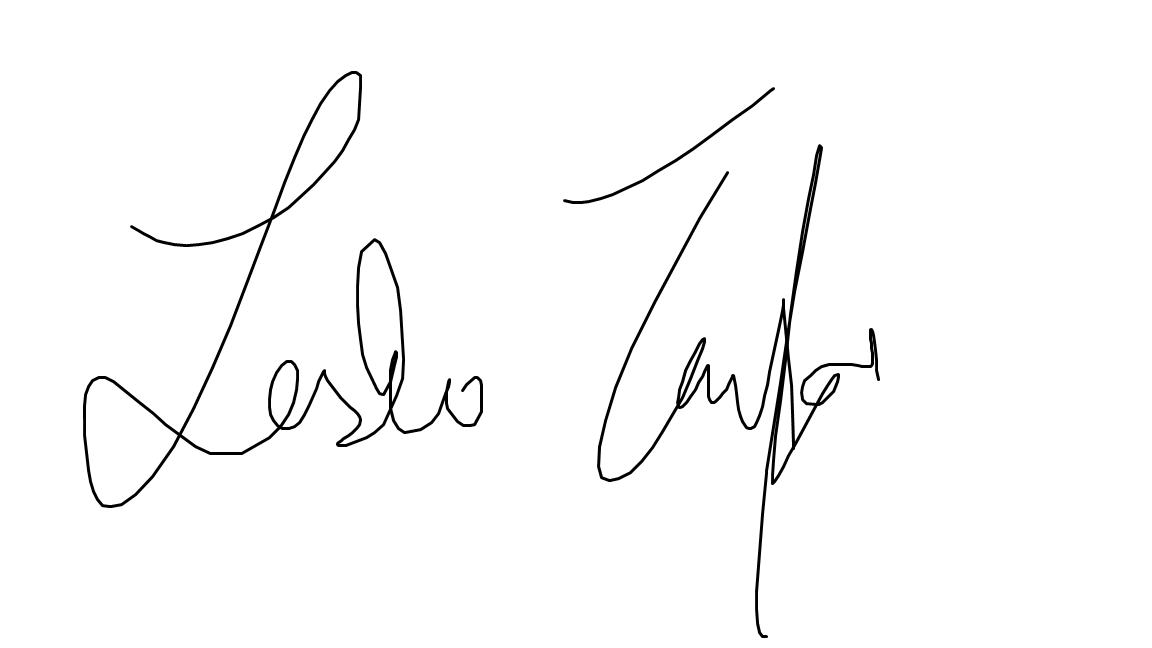 Leslie Taylor